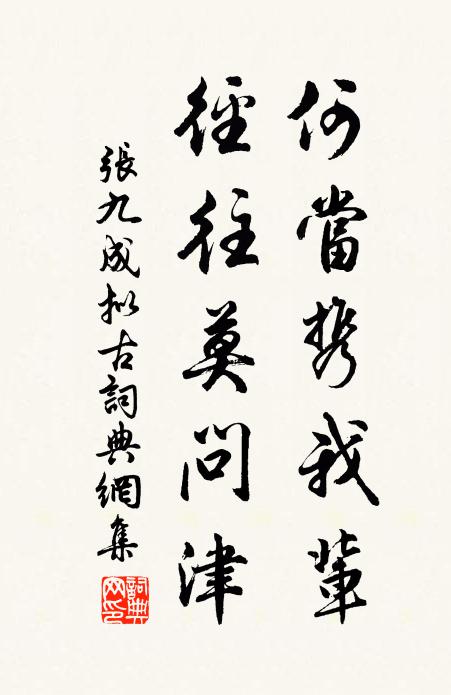 何當携我輩
徑往莫問津
張九成拟古詞典網集
詞典網印